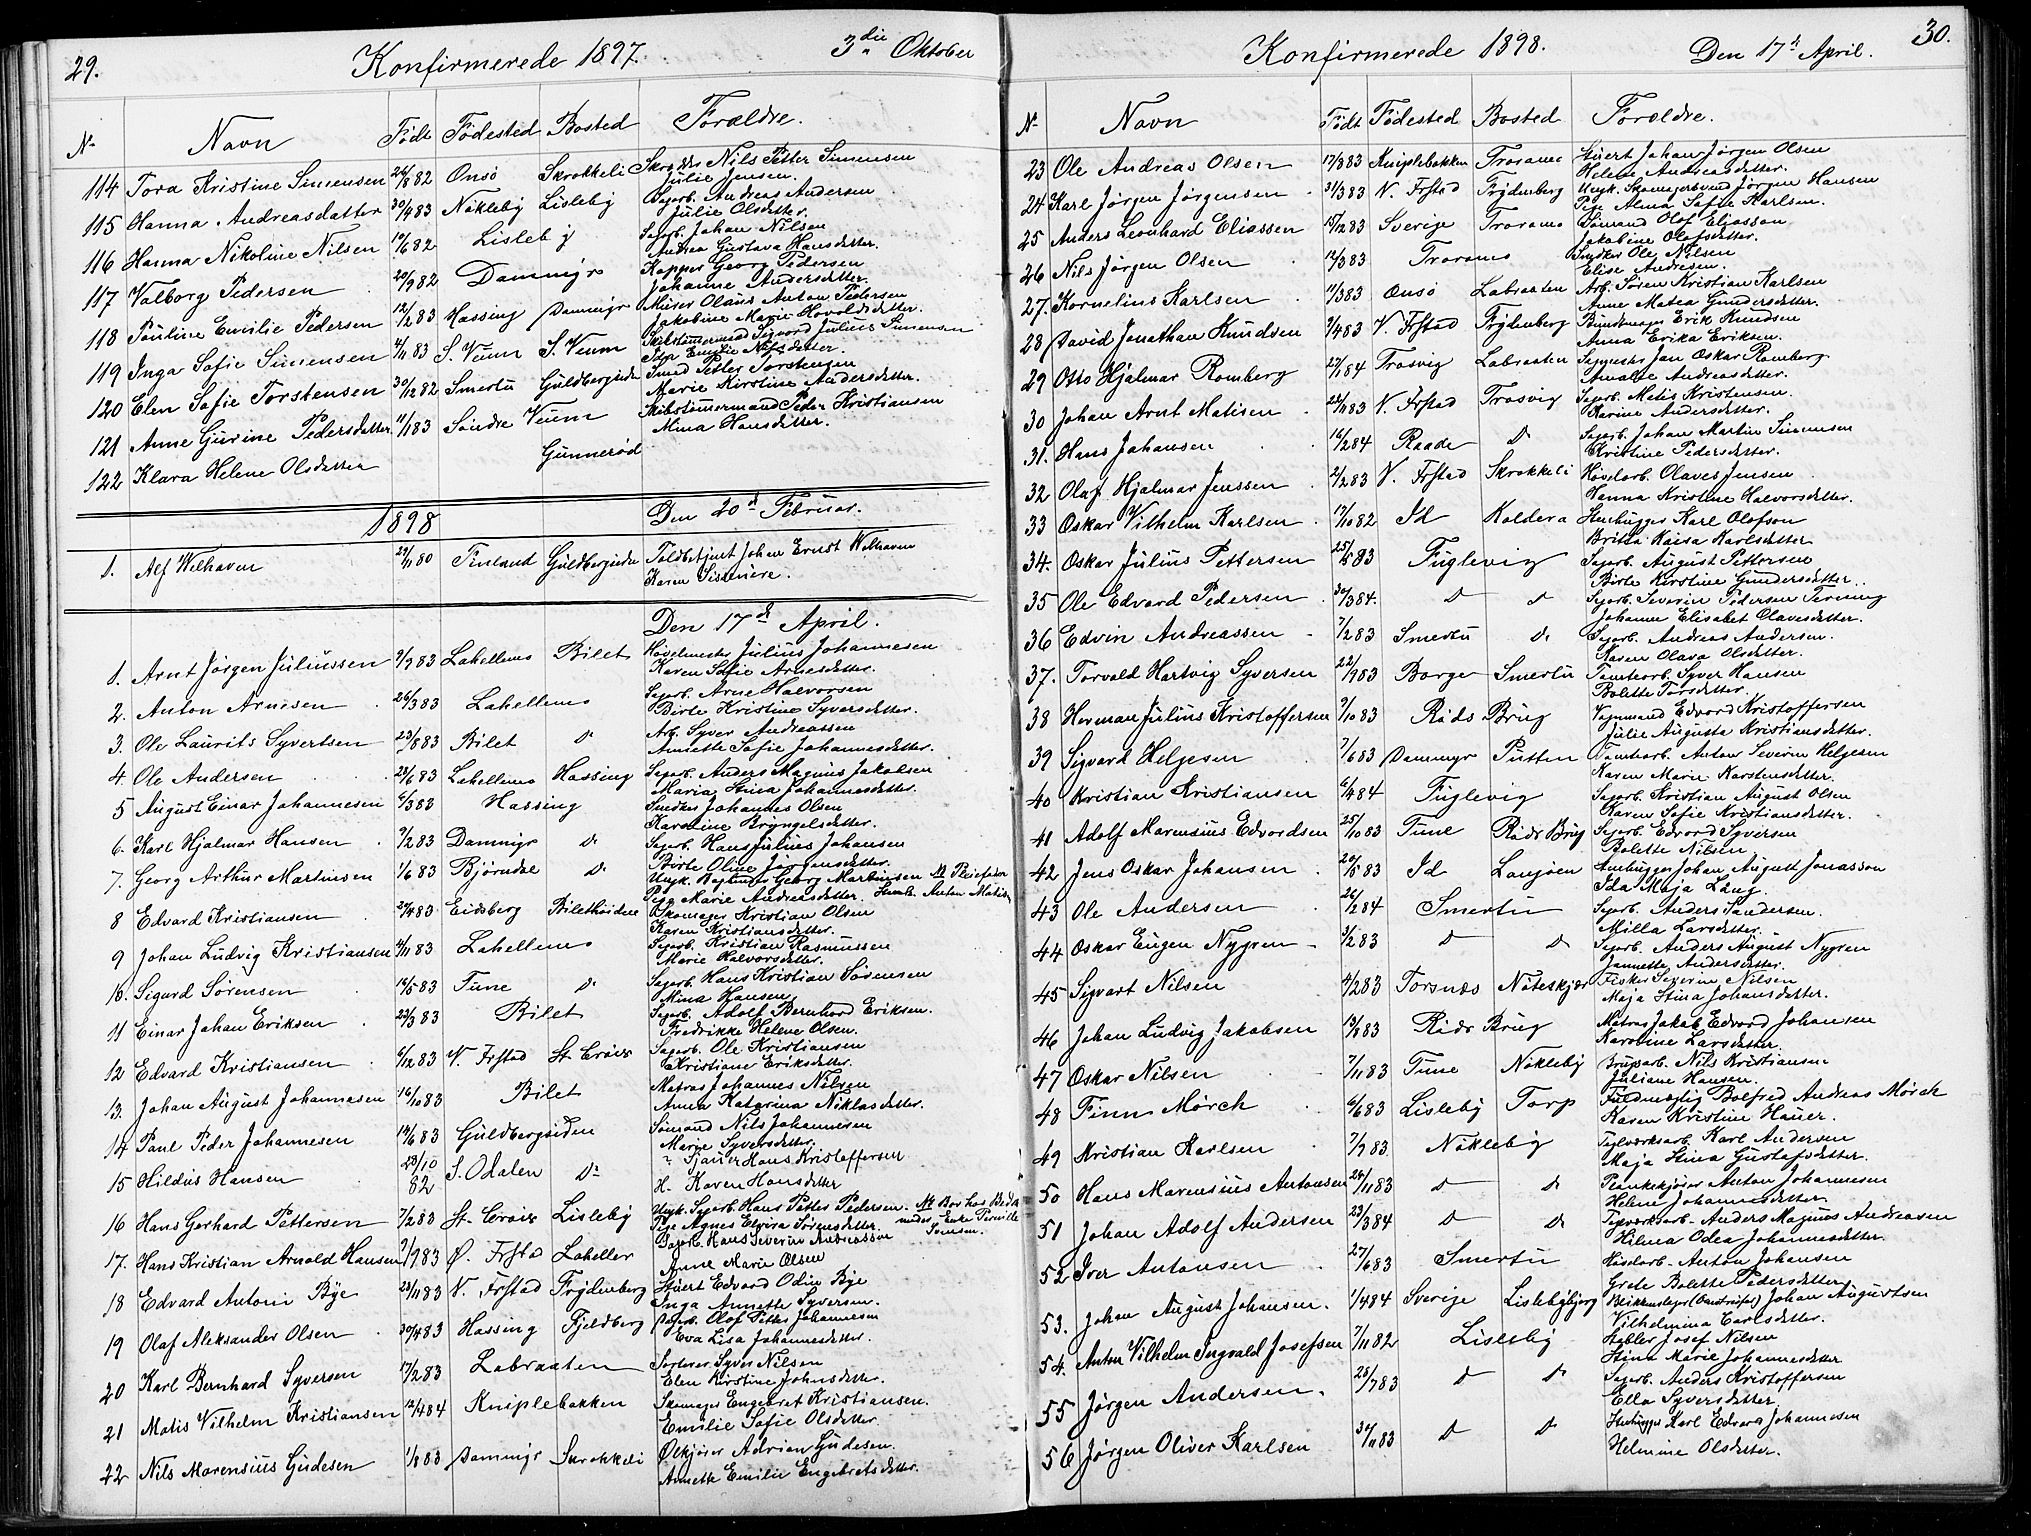 29.
Konfirmerede 1897.
3die Oktober
N.
Navn
Födt
Födested
Bosted
Forældre.
114 Tora Kristine Simensen 24/8 82 Onsö Skrokkeli Skrædder Nils Petter Simensen
Julie Jensen.
115 Hanna Andreasdatter 30/4 83 Nöklebÿ Lislebÿ Sagarb. Andreas Andersen
Julie Olsdatter.
116 Hanna Nikoline Nilsen 10/6 82 Lislebÿ Sagarb. Johan Nilsen
Andrea Gustava Hansdatter.
117 Valborg Pedersen 20/9 82 Dammyr Kopper Georg Pedersen
Johanne Andersdatter.
118 Pauline Emilie Pedersen 12/2 83 Hassing Dammyr Murer Olaus Anton Pedersen
Jakobine Marie Havoldsdatter.
119 Inga Sofie Simensen 4/11 83 S. Veum S. Veum Skibstömmermand Sigvard Julius Simensen
Ida Emilie Nilsdatter.
120 Elen Sofie Torstensen 30/12 82 Smertu Guldbergsiden Smed Petter Torstensen
Marie Kirstine Andersdatter.
121 Anne Gurine Pedersdatter 11/1 83 Söndre Veum Skibstömermand Peder Kristiansen
Mina Hansdatter.
122 Klara Helene Olsdatter Gunneröd
1898
Den 20de Februar.
1. Alf Welhaven 29/11 80 Finland Guldbergsiden Toldbetjent Johan Ernst Welhaven
Karen
Den 17de April.
1. Arnt Jörgen Juliussen 9/7 83 Lahellens Bilet Hövelmester Julius Johannesen
Karen Sofie Arnesdatter.
2. Anton Arnesen 26/3 83 Lahellens Sagarb. Arne Halvorsen
Birte Kristine Syversdatter.
3. Ole Laurits Syvertsen 23/8 83 Bilet do Arb. Syver Andreassen
Annette Sofie Johannesdatter.
4 Ole Andersen 23/6 83 Lahellens Hassing Sagarb. Anders Magnus Jakobsen
Maria Stina Johannesdatter.
5 August Einar Johannesen 6/3 83 Hassing Snedker Johannes Olsen
Karoline Bryngelsdatter.
6. Karl Hjalmar Hansen 9/2 83 Dammyr do Sagarb. Hans Julius Johansen
Birte Oline Jörgensdatter.
7. Georg Arthur Martinsen 1/6 83 Björndal do Ungk. Georg Martinsen Nt Pleiefader
Pige Marie Andreasdatter. Anton Matisen
8 Edvard Kristiansen 27/4 83 Eidsberg Bilethöiden Skomager Kristian Olsen
Karen Kristiansdatter.
9 Johan Ludvig Kristiansen 4/11 83 Lahellens Sagarb. Kristian Rasmussen
Marie Halvorsdatter.
10. Sigurd Sörensen 14/5 83 Tune do Sagarb. Hans Kristian Sörensen
Mina Hansen
11 Einar Johan Eriksen 22/3 83 Bilet Sagarb. Adolf Bernhard Eriksen.
Fredrikke Helene Olsen.
12 Edvard Kristiansen 6/12 83 V. Frstad St. Croix Sagarb. Ole Kristiansen
Kristiane Eriksdatter.
13. Johan August Johannesen 16/10 83 Bilet Matros Johannes Nilsen
Anna Katarina Niklasdatter.
14 Paul Peder Johannesen 14/6 83 Guldbergsiden Sömand Nils Johannesen
Marie Syversdatter.
15 Hildus Hansen 28/10 82 S. Odalen do Tjauer Hans Kristoffersen
H. Karen Hansdatter
16 Hans Gerhard Pettersen 7/2 83 St. Croix Lislebÿ Ungk. Sagarb. Hans Petter Pedersen. Nt Bor hos Bedste
Pige Agnes Elvira Sörensdatter. moder Enke Pernille
17. Hans Kristian Arnold Hansen 9/9 83 Ø. Frstad Lahellen Sagarb. Hans Severin Andreassen Jensen.
Anne Marie Olsen
18 Edvard Antoni Bÿe 23/11 83 V. Frstad Frÿdenberg Stuert Edvard Odin Bÿe
Inga Annette Syversen.
19 Olaf Aleksander Olsen 30/4 83 Hassing Fjeldberg Sagarb. Olof Petter Johannesen
Eva Lisa Johannesdatter.
20 Karl Bernhard Syversen 17/2 83 Labraaten Sorterer Syver Nilsen
Elen Kirstine Johnsdatter.
21 Matis Vilhelm Kristiansen 12/4 84 Kniplebakken Skomager Engebret Kristiansen.
Emilie Sofie Olsdatter.
22 Nils Marensius Gudesen 1/8 83 Dammyr Skrokkeli Ölkjörer Adrian Gudesen.
Annette Emilie Engebretsdatter.
30.
Konfirmerede 1898.
Den 17de April.
N.
Navn
Födt
Födested
Bosted
Forældre.
23 Ole Andreas Olsen 17/3 83 Kniplebakken Troranes Stuert Johan Jörgen Olsen
Helene Andreasdatter.
24 Karl Jörgen Jörgensen 31/3 83 V. Frstad Frÿdenberg Ungk. Skomagersvend Jörgen Hansen
Pige Alma Sofie Karlsen.
25 Anders Leonhard Eliassen 15/12 83 Sverige Troranes Sömand Olof Eliasson
Jakobine Olofsdatter.
26 Nils Jörgen Olsen 12/3 83 Troranes Snedker Ole Nilsen
Elise Andresen.
27. Kornelius Karlsen 11/3 83 Onsö Labraaten Arb. Sören Kristian Karlsen
Anne Matea Gundersdatter.
28 David Jonathan Knudsen 9/4 83 V. Frstad Frÿdenberg Bundtmager Erik Knudsen
Anna Erika Eriksen.
29 Otto Hjalmar Romberg 27/1 84 Trosvig Labraaten Sagmester Jan Oskar Romberg
Amalie Andreasdatter.
30 Johan Arnt Matisen 28/11 83 V. Frstad Trosvig Sagarb. Matis Kristensen.
Karine Andersdatter.
31. Hans Johansen 16/2 84 Raade do Sagarb. Johan Martin Simensen
Kristine Pedersdatter.
32 Olaf Hjalmar Jenssen 2/2 83 V. Frstad Skrokkeli Hövelarb. Olaves Jensen
Hanna Kristine Halvorsdatter.
33 Oskar Vilhelm Karlsen 17/10 82 Id Koldera Stenhugger Karl Olofson
Britta Kaisa Karlsdatter
34. Oskar Julius Pettersen 25/5 83 Fuglevig Sagarb. August Pettersen
Birte Kirstine Gundersdatter.
35 Ole Edvard Pedersen 30/3 84. do do Sagarb. Severin Pedersen
Johanne Elisabet Olavesdatter.
36 Edvin Andreassen 7/2 83 Smertu do Sagarb. Andreas Andersen.
Karen Olava Olsdatter.
37. Torvald Hartvig Syversen 22/9 83 Borge Smertu Tomtearb. Syver Hansen
Bolette Torsdatter.
38 Herman Julius Kristoffersen 9/10 83 Räds Brug Vognmand Edvard Kristoffersen
Julie Augusta Kristiansdatter.
39 Sigvard Helgesen 7/6 83 Dammyr Putten Tomtearb. Anton Severin Helgesen
Karen Marie Karstensdatter.
40 Kristian Kristiansen 6/4 84 Fuglevig Sagarb. Kristian August Olsen
Karen Sofie Kristiansdatter.
41 Adolf Marensius Edvardsen 25/10 83 Tune Räds Brug Sagarb. Edvard Syversen
Bolette Nilsen
42 Jens Oskar Johansen 20/5 83 Id Lanjoen Stenhugger Johan August Jonasson
Ida Maja Lang.
43 Ole Andersen 26/2 84 Smertu Sagarb. Anders Sandersen.
Milla Larsdatter.
44 Oskar Eugen Nygren 3/2 83 do do Sagarb. Anders August Nygren
Jannette Andersdatter.
45 Sigvart Nilsen 4/2 83 Torsnæs Nöteskjær Fisker Severin Nilsen
Maja Stina Johansdatter.
46 Johan Ludvig Jakobsen 13/8 83 Räds Brug Matros Jakob Edvard Johansen
Karoline Larsdatter.
47 Oskar Nilsen 7/11 83 Tune Nöklebÿ Brugsarb. Nils Kristiansen
Juliane Hansen.
48 Finn Mörch 6/6 83 Lislebÿ Torp Fuldmægtig Bolfred Andreas Mörch
Karen Kristine Hauer.
49 Kristian Karlsen 7/7 83 Nöklebÿ Teglværksarb. Karl Andersen
Maja Stina Gustafsdatter.
50 Hans Marensius Antonsen 26/11 83 do do Plankekjörer Anton Johannesen
Helene Johannesdatter.
51 Johan Adolf Andersen 23/3 84 do do Teglværksarb. Anders Magnus Andreasen
Hilma Odea Johannesdatter.
52 Iver Antonsen 27/6 83 Smertu Husarb. Anton Johansen
Grete Bolette Pedersdatter
53. Johan August Johansen. 1/4 84 Sverige Lislebÿbjerg Blikkenslager Johan Augustsen
Vilhelmina Carlsdatter.
54. Anton Vilhelm Ingvald Josefsen 7/11 82 Lislebÿ Stabler Josef Nilsen
Stina Marie Johannesdatter
55 Jörgen Andersen. 26/7 83 do do Sagarb. Anders Kristoffersen
Ella Syversdatter.
56 Jörgen Oliver Karlsen 30/11 83 do do Stenhugger Karl Edvard Johannesen
Helmine Olsdatter.